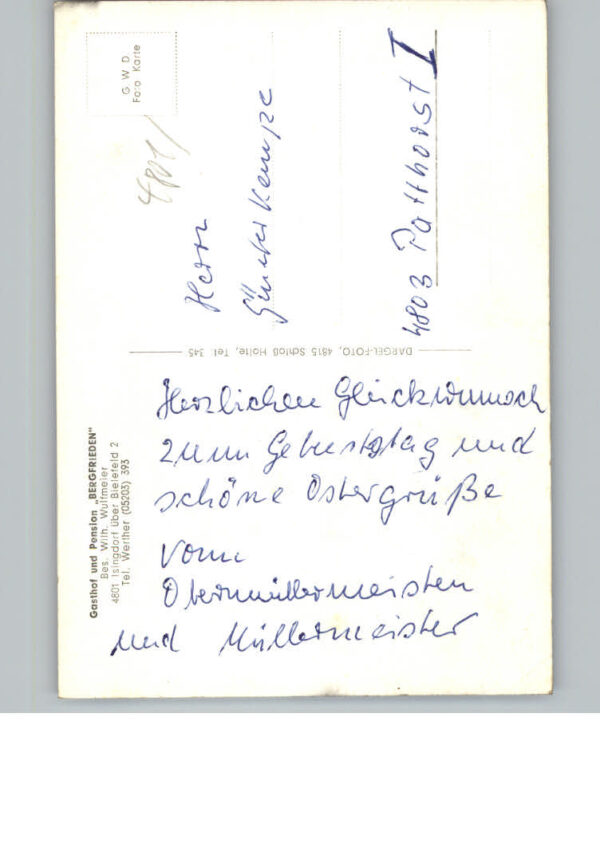 G W D
Foto Karte
4801/
Herrn
Günter Kempe
4803 Patthorst I
DARGEL-FOTO, 4815 Schloß Holte, Tel. 345
Gasthof und Pension „BERGFRIEDEN"
Bes. Wilh. Wulfmeier
4801 Isingdorf über Bielefeld 2
Tel. Werther (05203) 393
Herzlichen Glückwunsch
zum Geburtstag und
schöne Ostergrüße
vom
Obermüllermeister
und Müllermeister